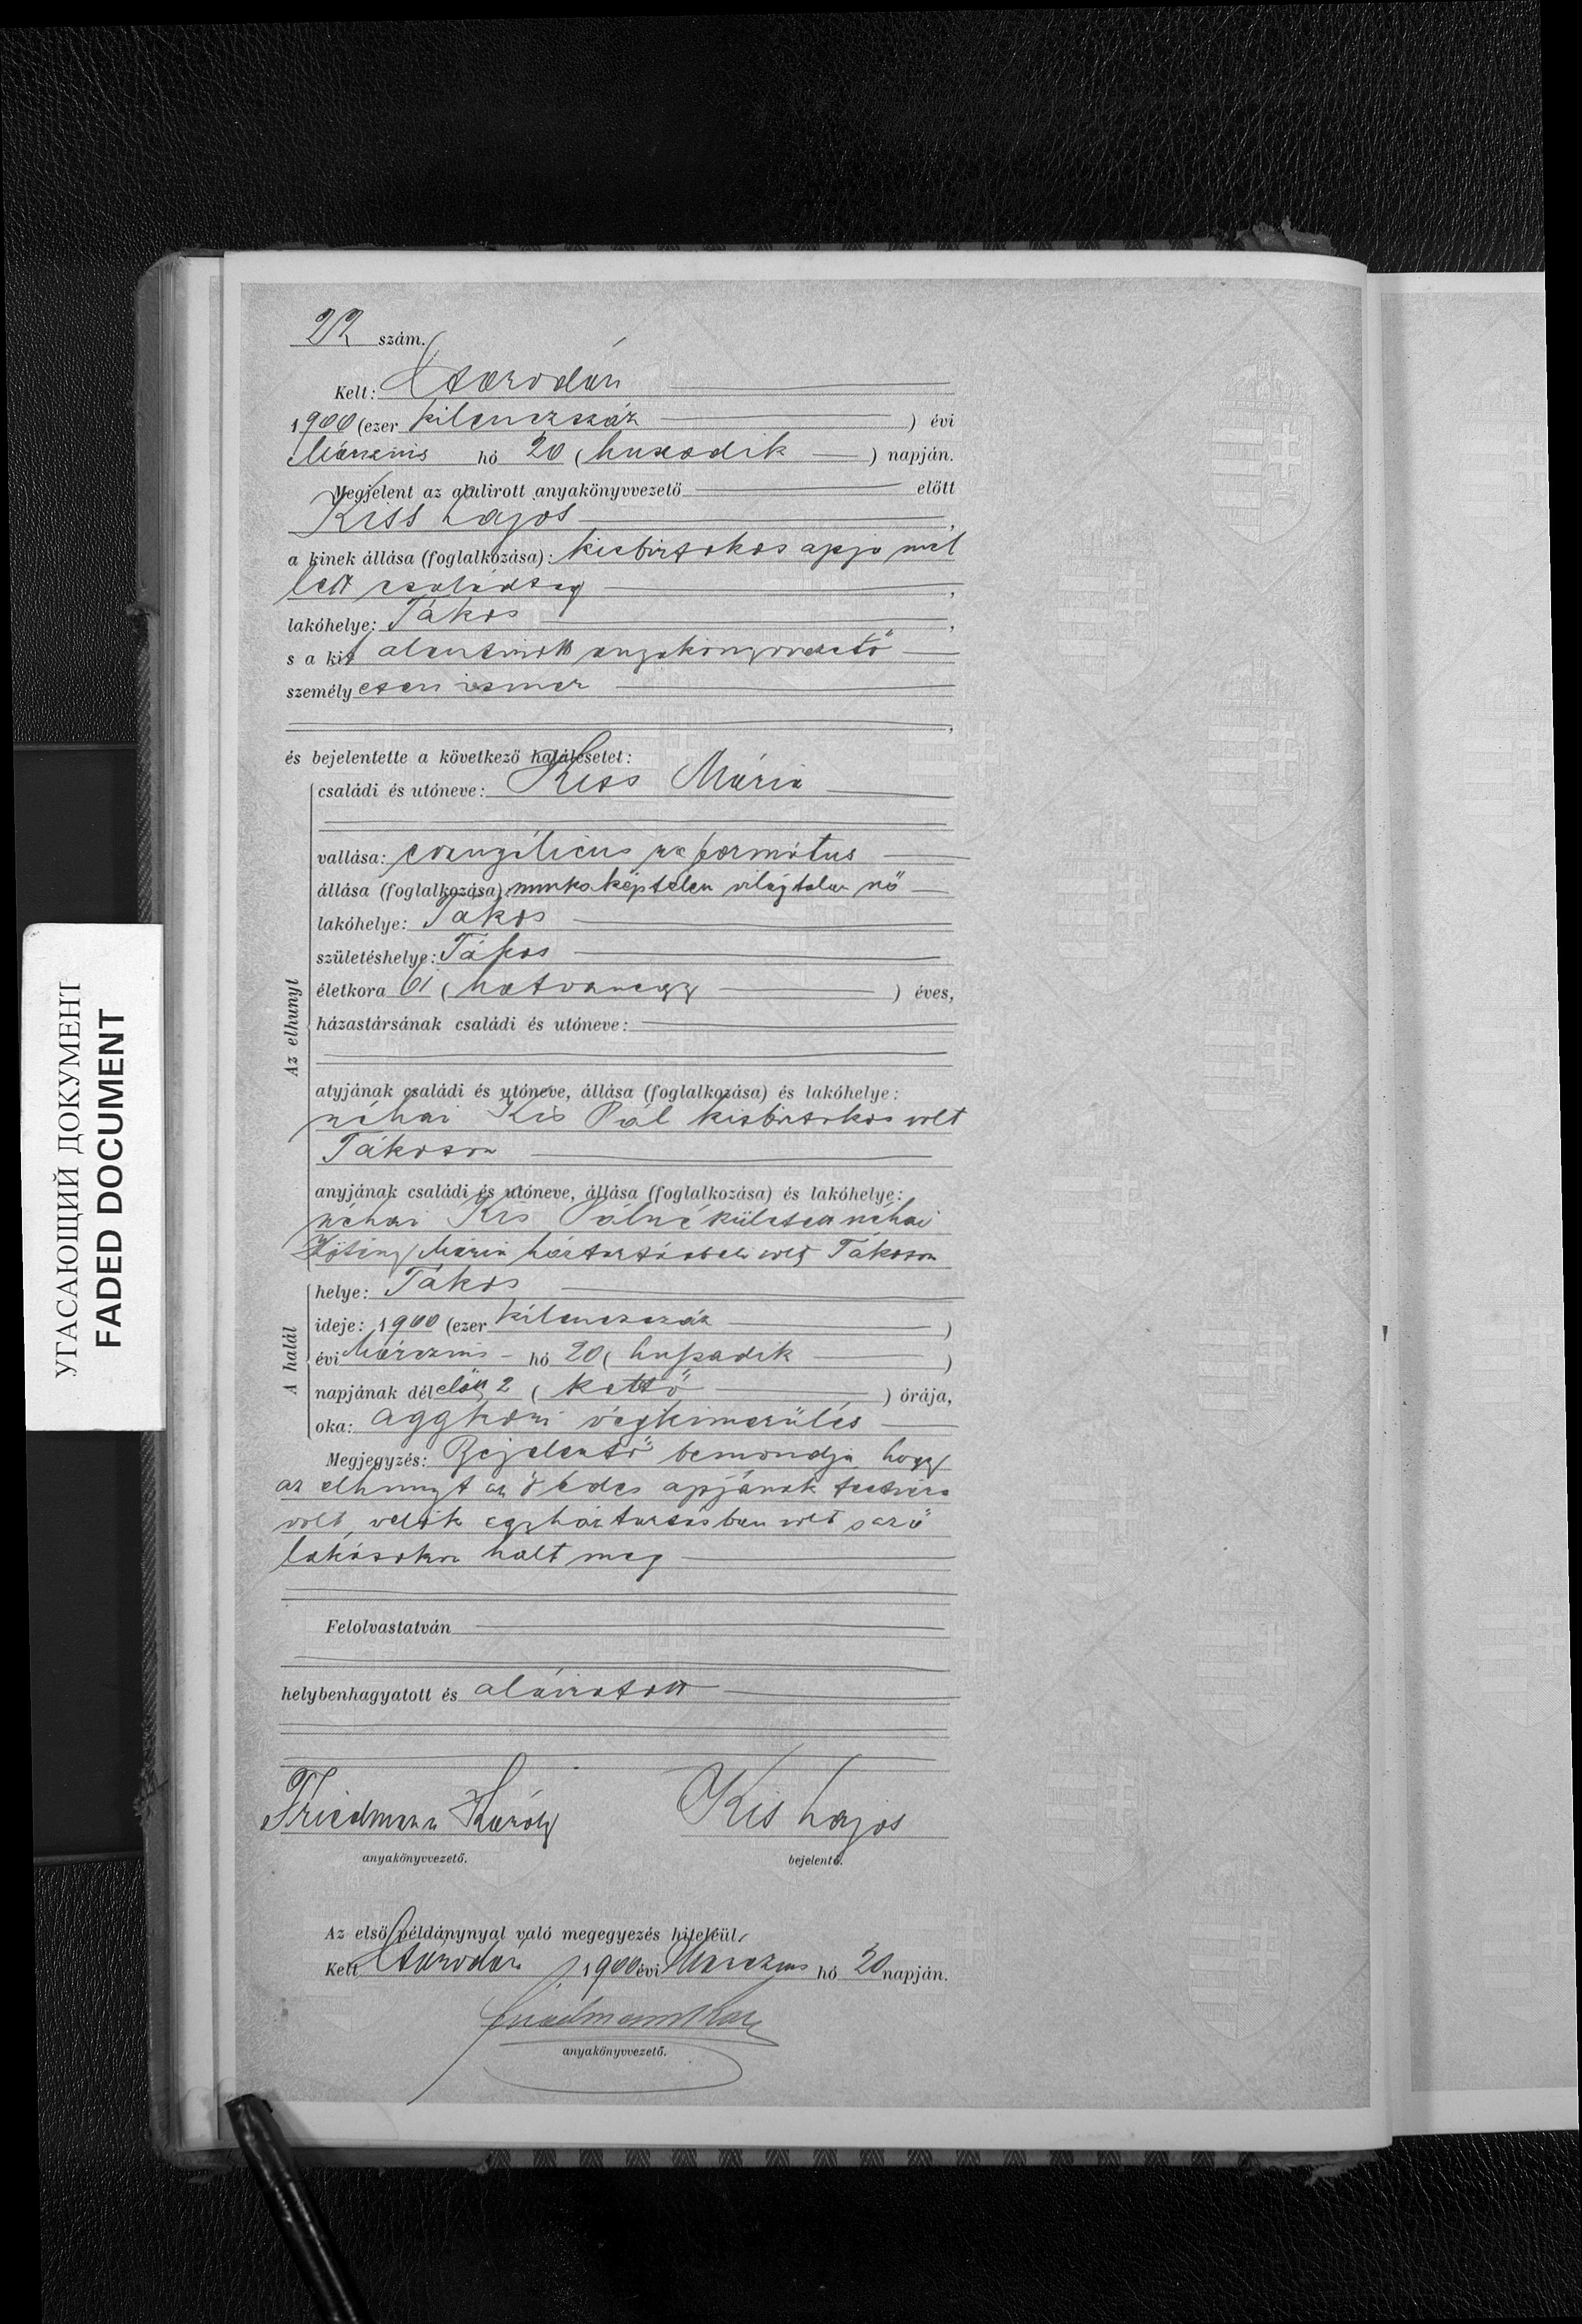 22 szám.
Kelt: Csarodán
1900 (ezer kilenczszáz) évi
Márczius hó 20 (huszadik) napján.
Megjelent az alulirott anyakönyvvezető előtt
Kiss Lajos,
a kinek állása (foglalkozása): kisbirtokos apja mel
lett családtag,
lakóhelye: Tákos,
s a kit alantirott anyakönyvvezető
személyesen ismer
,
és bejelentette a következő halálesetet:
Az elhunyt
családi és utóneve: Kiss Mária
vallása: evangélicus református
állása (foglalkozása): munkaképtelen világtalan nő
lakóhelye: Tákos
születéshelye: Tákos
életkora 61 (hatvanegy) éves,
házastársának családi és utóneve:
atyjának családi és utóneve, állása (foglalkozása) és lakóhelye:
néhai Kis Pál kisbirtokos volt
Tákoson
anyjának családi és utóneve, állása (foglalkozása) és lakóhelye:
néhai Kis Pálné született néhai
Mária háztartásbeli volt Tákoson
A halál
helye: Tákos
ideje: 1900 (ezer kilenczszáz)
évi Márczius hó 20 (huszadik)
napjának délelőtt 2 (kettő) órája,
oka: aggkori végkimerülés
Megjegyzés: Bejelentő bemondja hogy
az elhunyt az ő édes apjának testvére
volt, velök egy háztartásban volt s az ő
lakásokon halt meg
Felolvastatván
helybenhagyatott és aláiratott
Friedmann Károly
anyakönyvvezető.
Kis Lajos
bejelentő.
Az első példánynyal való megegyezés hiteléül
Kelt Csarodán, 1900 évi Márczius hó 20 napján.
Friedmann Kár
anyakönyvvezető.
УГАСАЮЩИЙ ДОКУМЕНТ
FADED DOCUMENT